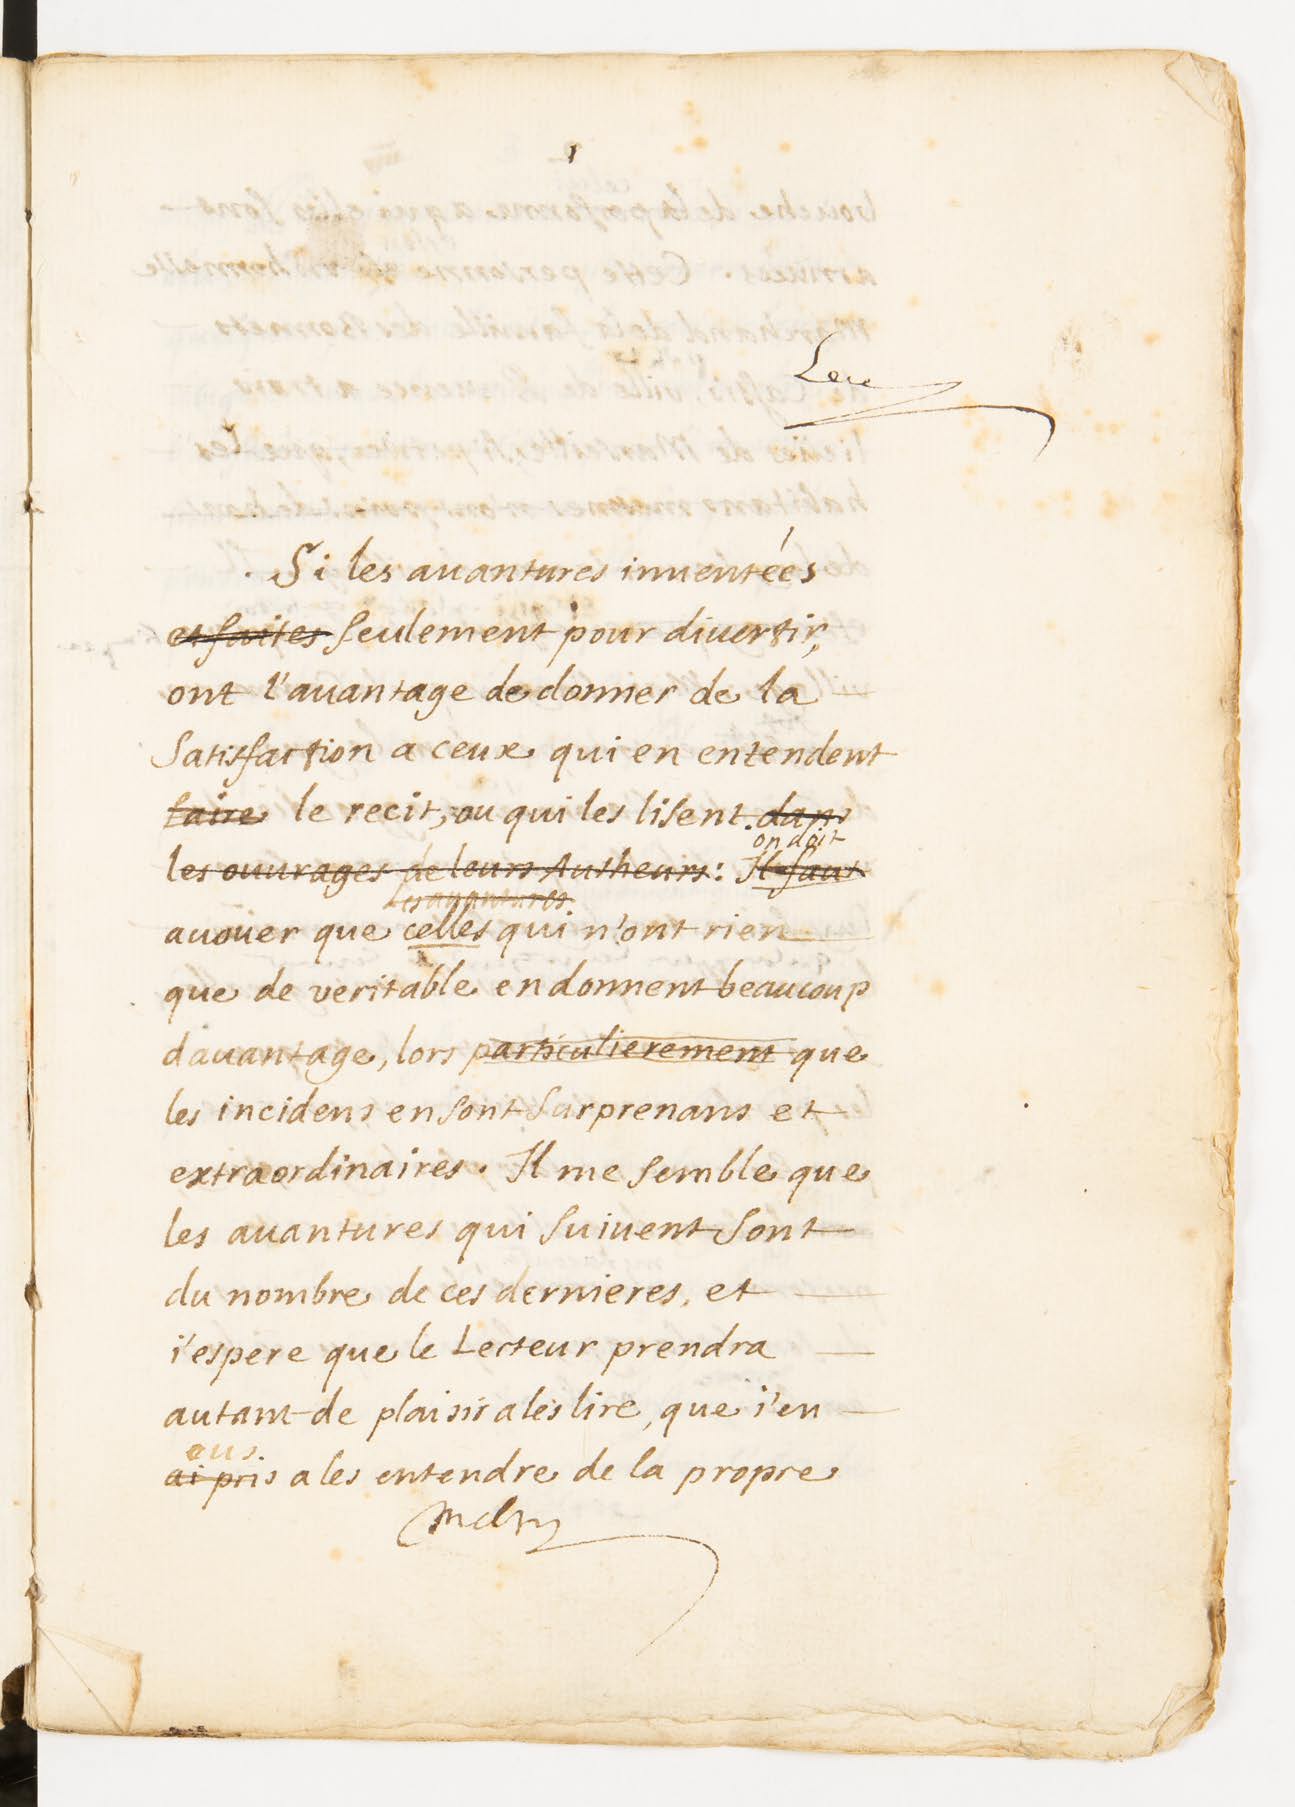 1
Si les auantures inuentées
et faites seulement pour diuertir,
ont l'auantage de donner de la
Satisfaction a ceux qui en entendent
faire le recit, ou qui les lisent. dans
on doit
les ouurages de leurs Autheurs: Il faut
les auantures
auoüer que celles qui n'ont rien
que de veritable en donnent beaucoup
dauantage, lors particulierement que
les incidens en sont surprenans et
extraordinaires. Il me semble que
les auantures qui suiuent sont
du nombre de ces dernieres, et
i'espere que le Lecteur prendra
autant de plaisir a les lire, que i'en
eus
ai pris a les entendre de la propre